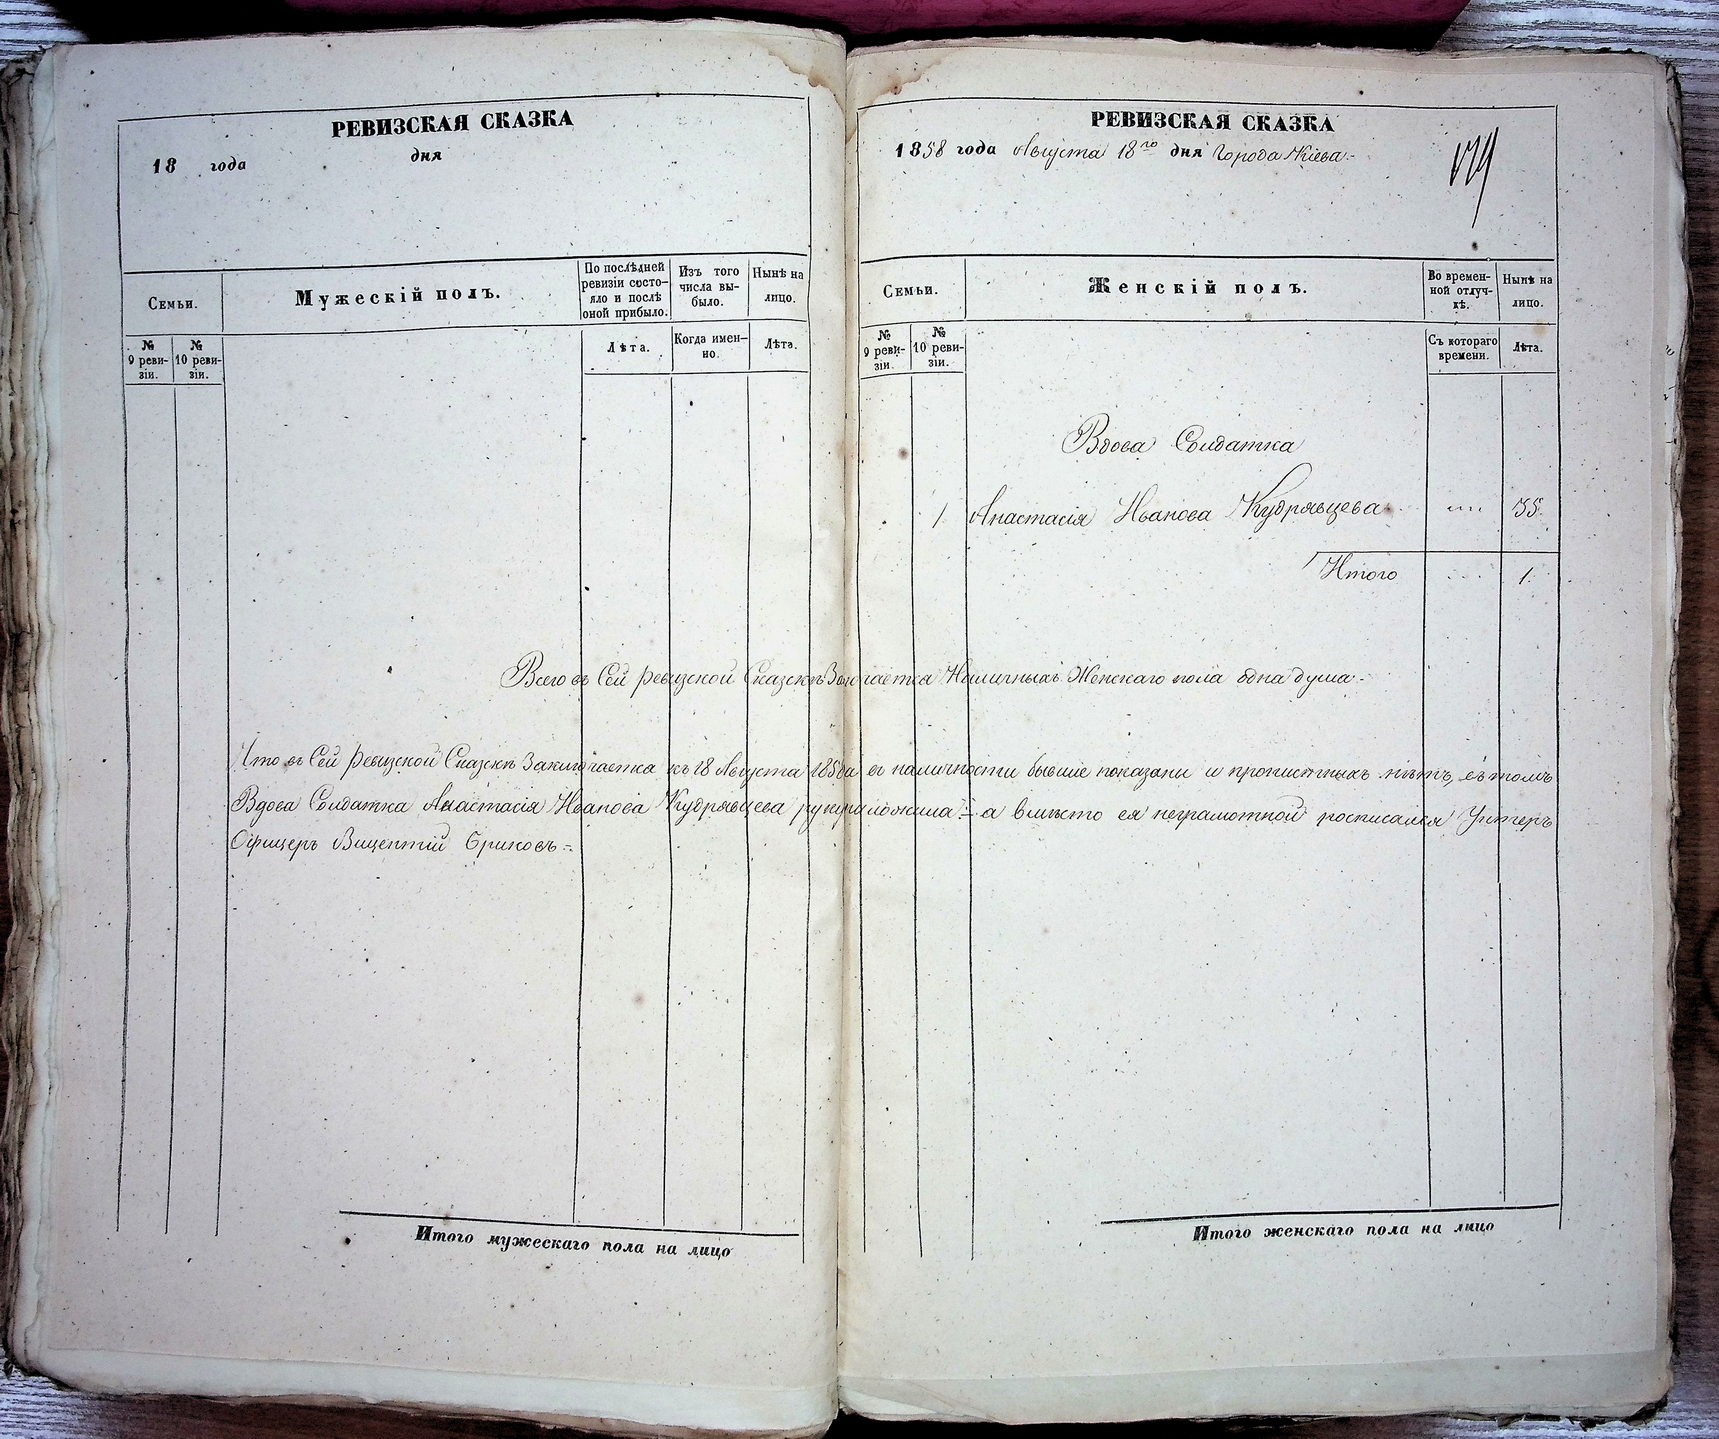 РЕВИЗСКАЯ СКАЗКА
18 года дня
Семьи.
Мужескій полъ.
По послѣдней ревизіи состо-
яло и послѣ оной прибыло.
Изъ того числа вы-
было.
Нынѣ на лицо.
№ 9 реви-
зіи.
№ 10 реви-
зіи.
Лѣта.
Когда имен-
но.
Лѣта.
РЕВИЗСКАЯ СКАЗКА
1858 года Августа 18го дня Города Кіева
Семьи.
Женскій полъ.
Во времен-
ной отлуч-
кѣ.
Нынѣ на лицо.
№ 9 реви-
зіи.
№ 10 реви-
зіи.
Съ котораго времени.
Лѣта.
Вдова Солдатка
1 Анастасія Иванова Кудрявцева 35
Итого 1
Всего въ Сей ревизской Сказкѣ Заключается Наличныхъ Женскаго пола одна душа
Что въ Сей Ревизской Сказкѣ Заключается къ 18 Августа 1858 въ наличности бывшие показаны и прописныхъ нѣтъ, въ томъ
Вдова Солдатка Анастасія Иванова Кудрявцева руку приложила а вмѣсто ея неграмотной росписался Унтеръ
Офицеръ Вицентий
Итого мужескаго пола на лицо
Итого женскаго пола на лицо